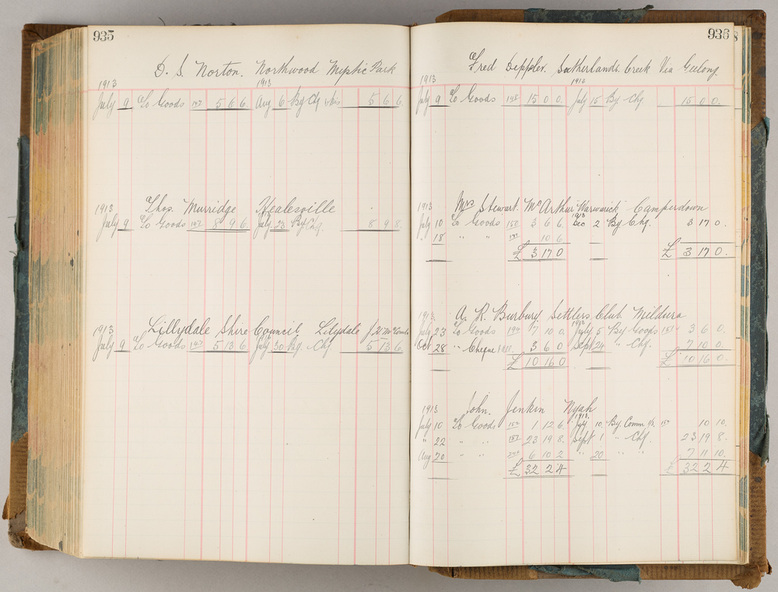 935
D. S. Norton. Northwood Mystic Park
1913 1913
July 9 To Goods 157 5 6 6 Aug 6 By Cq 5 6 6
1913 Thos. Murridge Healesville
July 9 To Goods 157 8 9 6 July 23 By Chq 8 9 6
1913 Lillydale Shire Council Lilydale
July 9 To Goods 157 5 13 6 July 30 By Chq 5 13 6
936
Fred Deppler. Sutherlands Creek Via Geelong
1913 1913
July 9 To Goods 158 15 0 0 July 15 By Chq 15 0 0
1913 Mrs Stewart McArthur Warwick Camperdown
July 10 To Goods 158 3 6 6 Dec 2 By Chq. 3 17 0
18 " " 10 6
£ 3 17 0 £ 3 17 0
1913 A. R. Burbury Settlers Club Mildura
July 23 To Goods 7 10 0 July 5 By Goods 157 3 6 0
Oct 28 " Cheque 3 6 0 Sept 24 " Chq. 7 10 0
£ 10 16 0 £ 10 16 0
1913 John Jenkin Nyah
July 10 To Goods 1 12 6 July 10 By Comm 10 10
" 22 " " 23 19 8 Sept 1 " Chq. 23 19 8
Aug 20 " " 6 10 2 " 20 " " 7 11 10
£ 32 2 4 £ 32 2 4